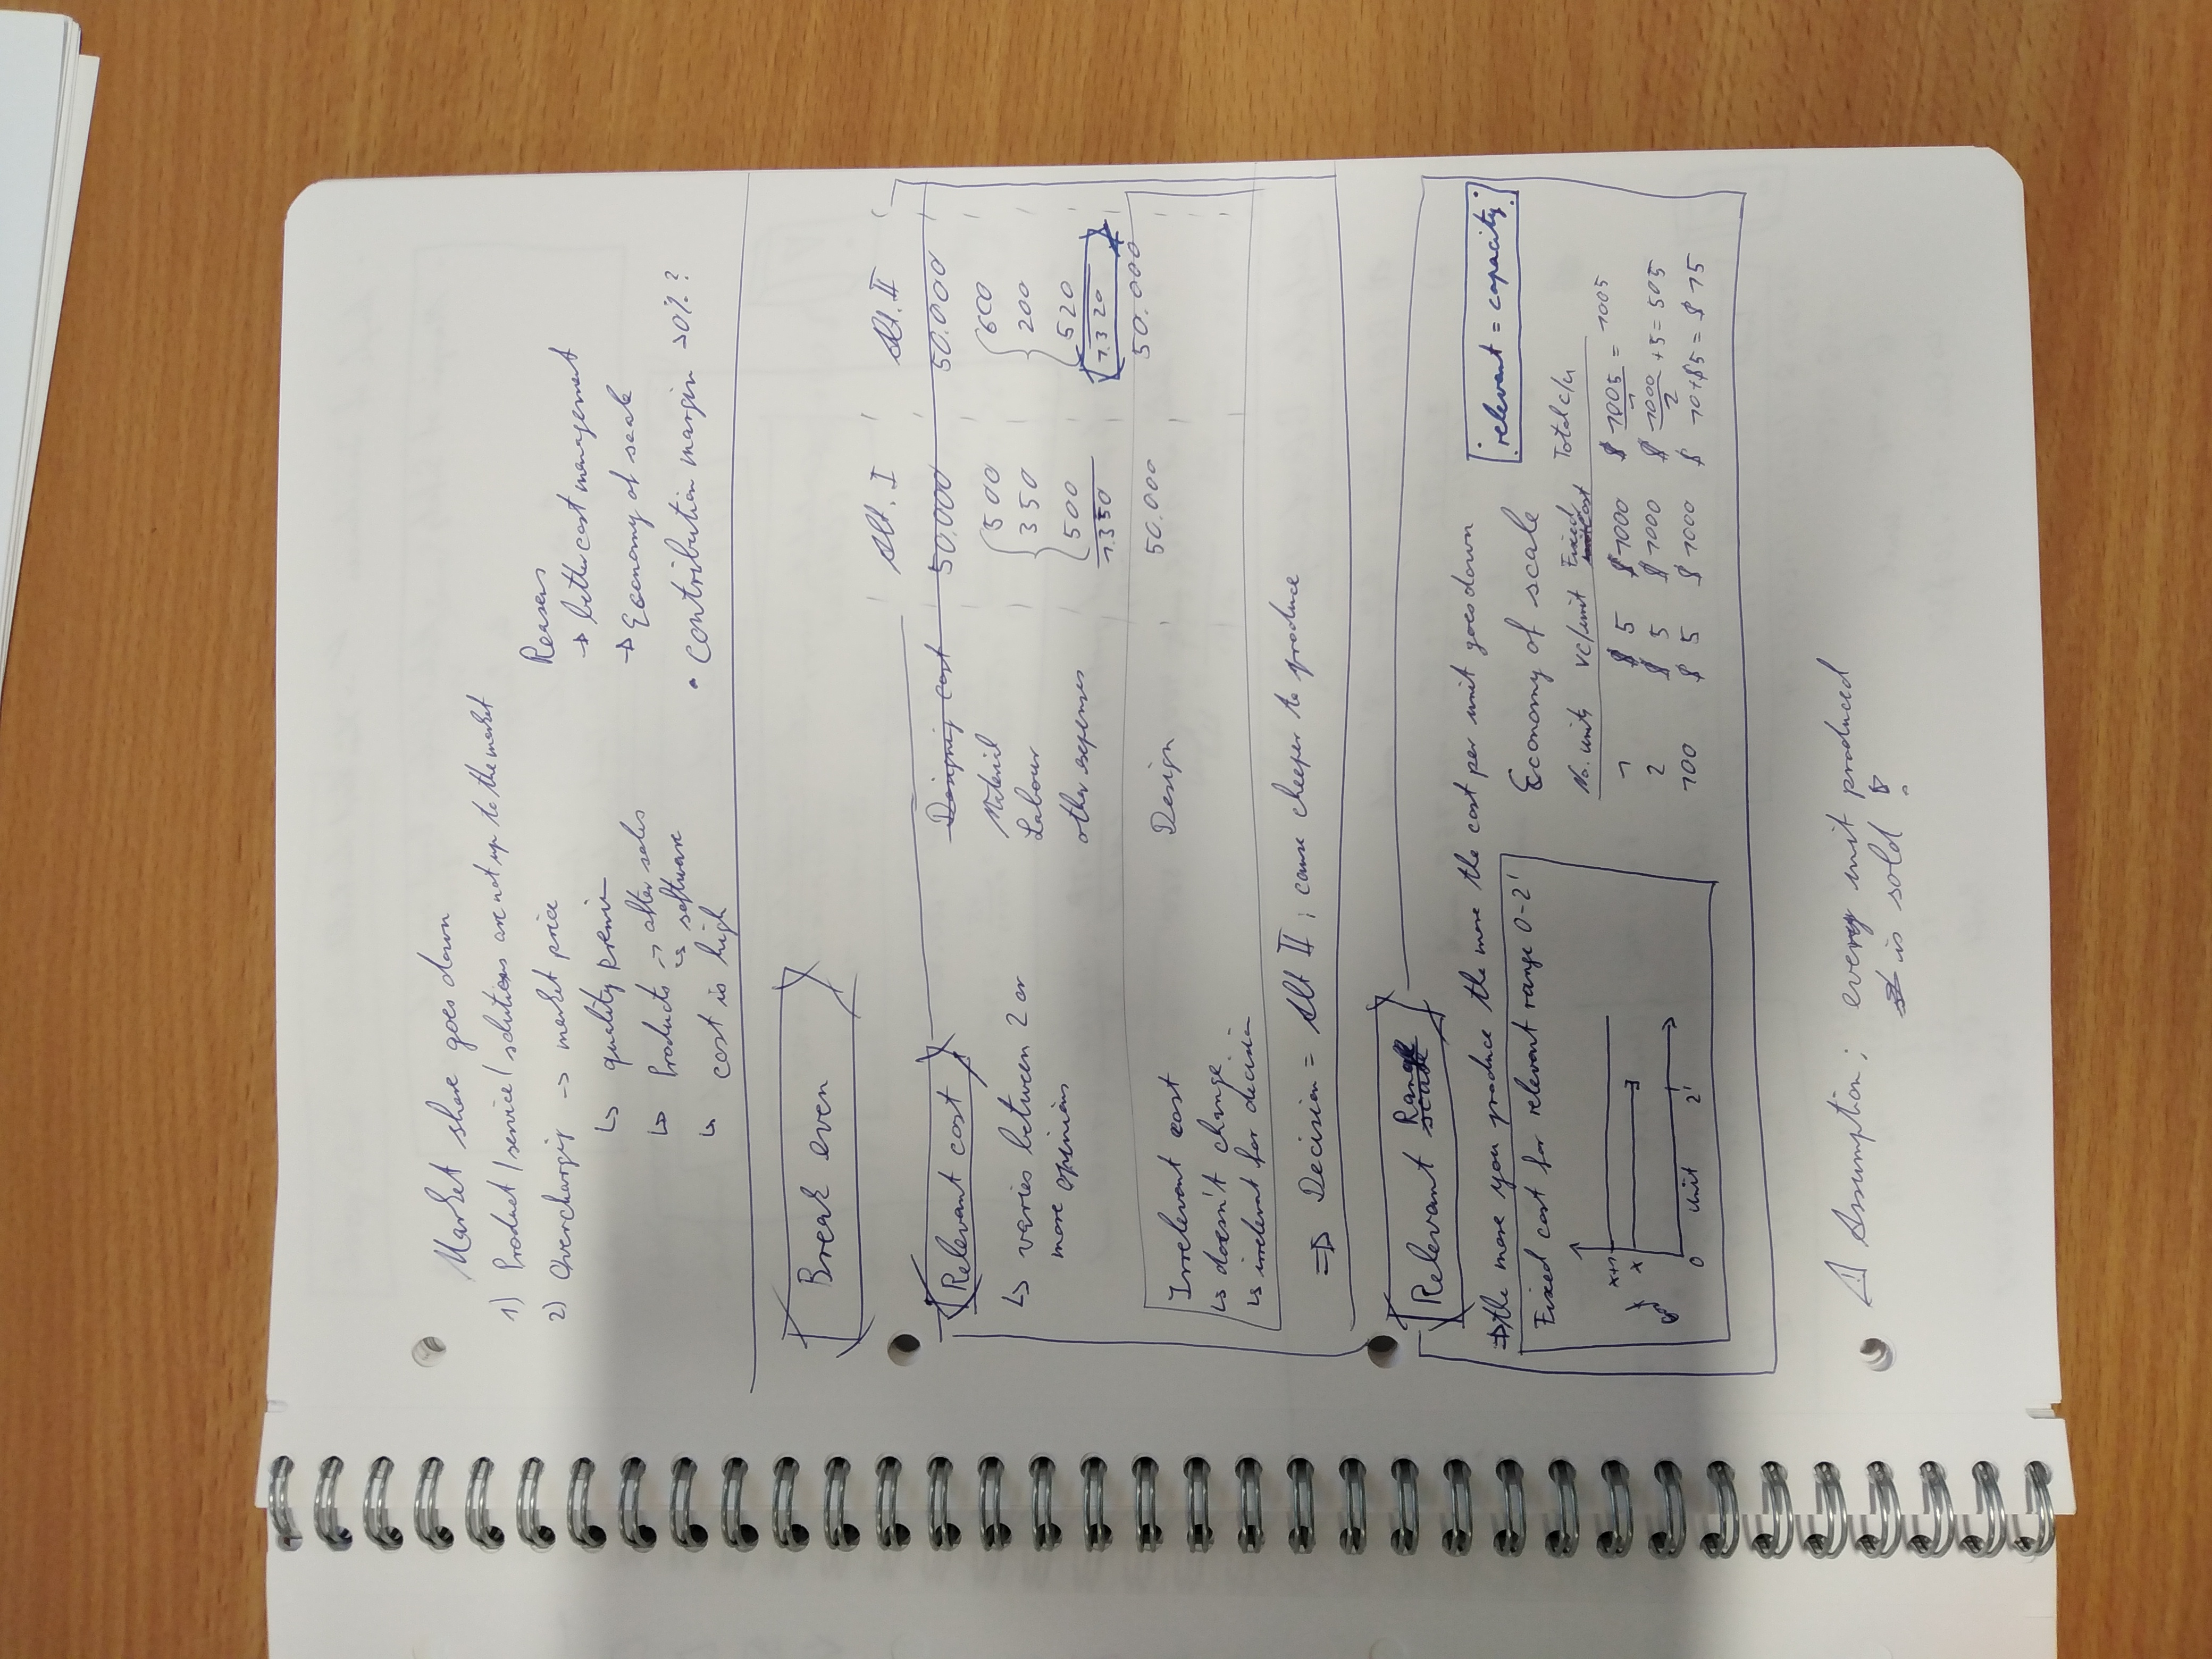 Market share goes down
1) Product / service / solutions are not up to the market
2) Overcharging -> market price
↳ quality
↳ Products -> after sales
↳ software
↳ cost is high
Reasons
-> better cost management
-> Economy of scale
• contribution margin 20%?
Break even
Relevant cost
↳ varies between 2 or
more opinions
Alt. I Alt. II
Designing cost 50.000 50.000
Material 500 600
Labour 350 200
other expenses 500 520
1.350 1.320
Design 50.000 50.000
Irrelevant cost
↳ doesn't change
↳ is irrelevant for decision
=> Decision = Alt II; cause cheeper to produce
Relevant Range
relevant = capacity
=> the more you produce the more the cost per unit goes down
Fixed cost for relevant range 0-2'
x+1
x
0 Unit 2'
Economy of scale
No. units VC/unit Fixed cost Total c/u
1 $ 5 $ 1000 $ 1005/1 = 1005
2 $ 5 $ 1000 $ 1000/2 + 5 = 505
100 $ 5 $ 1000 $ 10 + $5 = $ 15
⚠ Assumption: every unit produced
is sold !